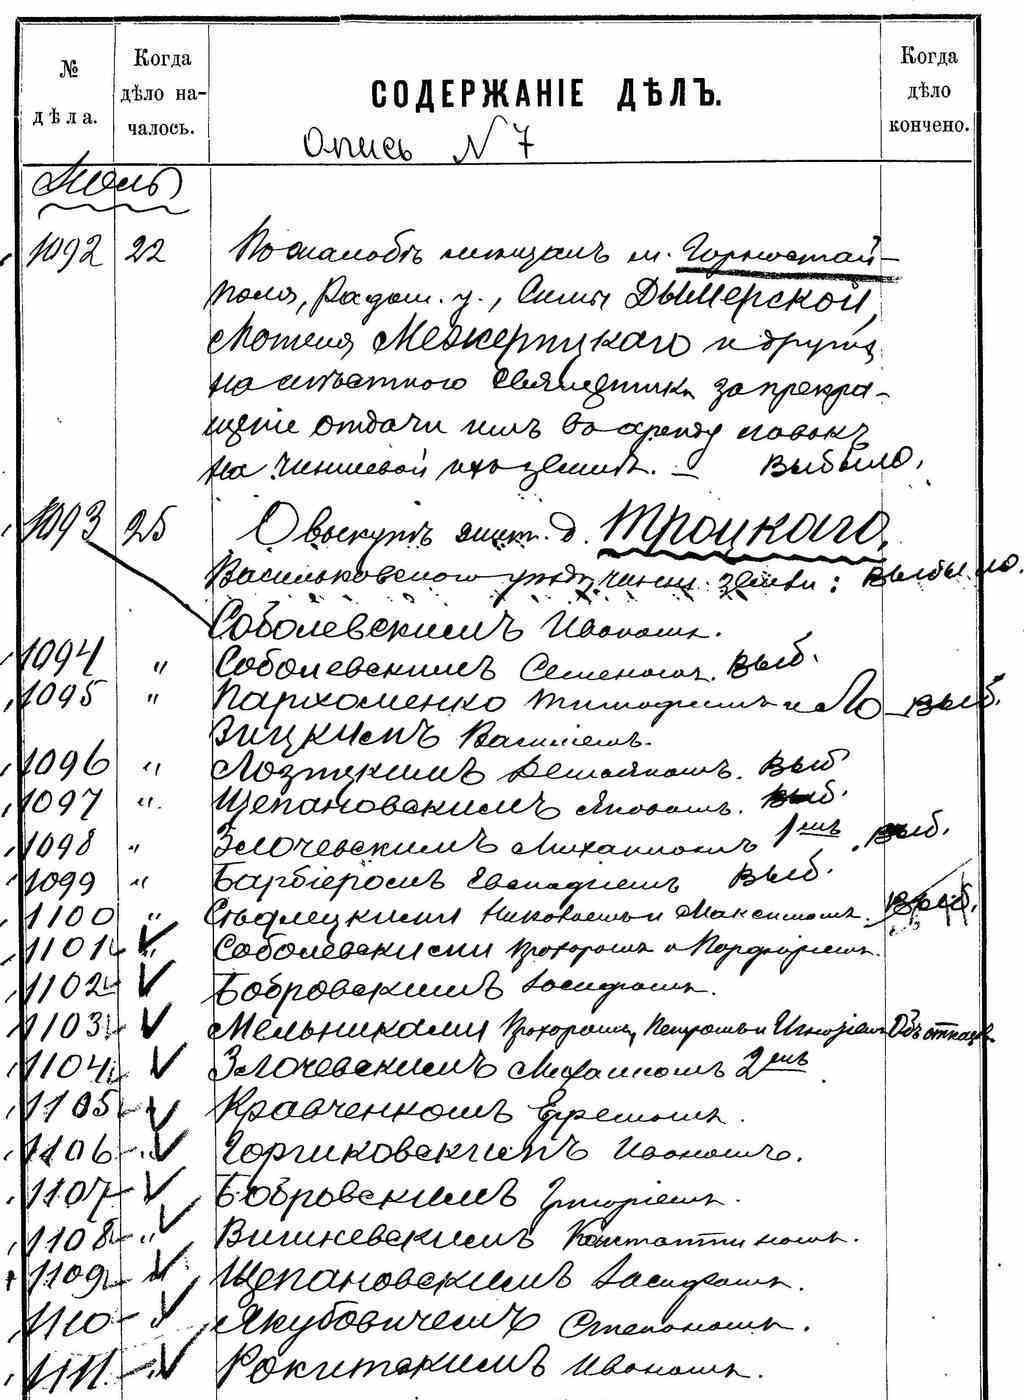 № дѣла.
Когда дѣло на-чалось.
СОДЕРЖАНІЕ ДѢЛЪ.
Когда дѣло кончено.
Опись N 7
Іюль
1092 22 По жалобѣ мѣщанъ м. Горностай-
поля, Радом. у., Симы Дымерской,
Мотеля Межерицкаго и другихъ
на мѣстного священника за прекра-
щеніе отдачи имъ въ аренду лавокъ
на чиншевой ихъ землѣ. — Выбыло.
1093 25 О выкупѣ жит. д. Троцкаго,
Васильковского уѣзда, чинш. земли: Выбыло.
Соболевскимъ Иваномъ.
1094 " Соболевскимъ Семеномъ. Выб.
1095 " Пархоменко Тимофеемъ и Ло- Выб.
зицкимъ Василіемъ.
1096 " Лозицкимъ Демьяномъ. Выб
1097 " Щепановскимъ Яковомъ. Выб.
1098 " Злочевскимъ Михаиломъ 1мъ. Выб.
1099 " Барбіеромъ Евгеніемъ Выб.
1100 " Сѣдлецкими Николаемъ и Максимомъ. Выб.
1101 " Соболевскими Прохоромъ и Порфиріемъ.
1102 Бобровскимъ Іосифомъ.
1103 Мельниками Прохоромъ, Петромъ и Игнатіемъ Объ отказѣ
1104 Злочевскимъ Михаиломъ 2мъ
1105 Кравченкомъ Ефремомъ.
1106 " Горчиковскимъ Иваномъ.
1107 Бобровскимъ Григоріемъ.
1108 " Вишневскимъ Константиномъ.
1109 " Щепановскимъ Іосифомъ.
1110 " Якубовичемъ Степаномъ.
1111 " Рокитскимъ Иваномъ.